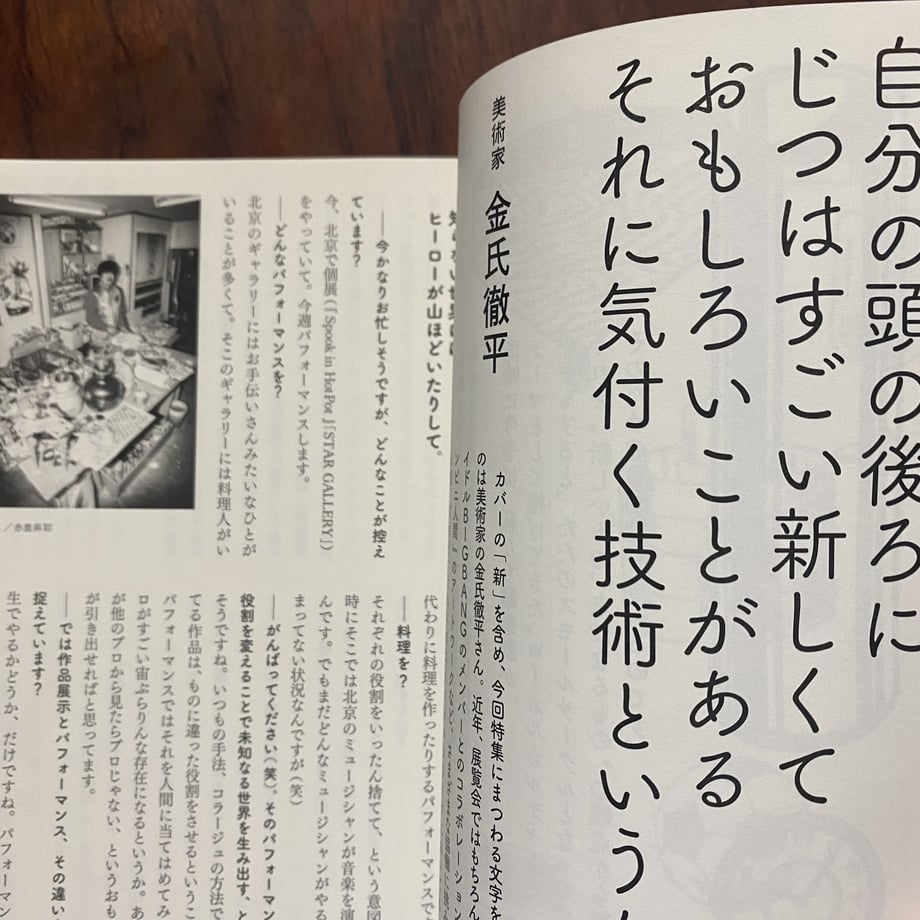 自分の頭の後ろに
じつはすごい新しくて
おもしろいことがある
それに気付く技術という
美術家 金氏徹平
カバーの「新」を含め、今回特集にまつわる文字を
のは美術家の金氏徹平さん。近年、展覧会ではもちろん
イドルBIGBANGのメンバーとのコラボレーション
ンビニ人間』のアートワークなど、
ヒーローが山ほどいたりして。
——今かなりお忙しそうですが、どんなことが控え
ています?
今、北京で個展(「Spook in HotPot」「STAR GALLERY」)
をやっていて。今週パフォーマンスします。
——どんなパフォーマンスを?
北京のギャラリーにはお手伝いさんみたいなひとが
いることが多くて。そこのギャラリーには料理人がい
／赤鹿麻耶
代わりに料理を作ったりするパフォーマンスで
——料理を?
それぞれの役割をいったん捨てて、という意図
時にそこでは北京のミュージシャンが音楽を演
んです。でもまだどんなミュージシャンがやる
まってない状況なんですが(笑)
——がんばってください(笑)。そのパフォーマン
役割を変えることで未知なる世界を生み出す、と
そうですね。いつもの手法、コラージュの方法で
てる作品は、ものに違った役割をさせるというこ
パフォーマンスではそれを人間に当てはめてみ
ロがすごい宙ぶらりんな存在になるというか。あ
が他のプロから見たらプロじゃない、というおも
が引き出せればと思ってます。
——では作品展示とパフォーマンス、その違い
捉えています?
生でやるかどうか、だけですね。パフォーマン